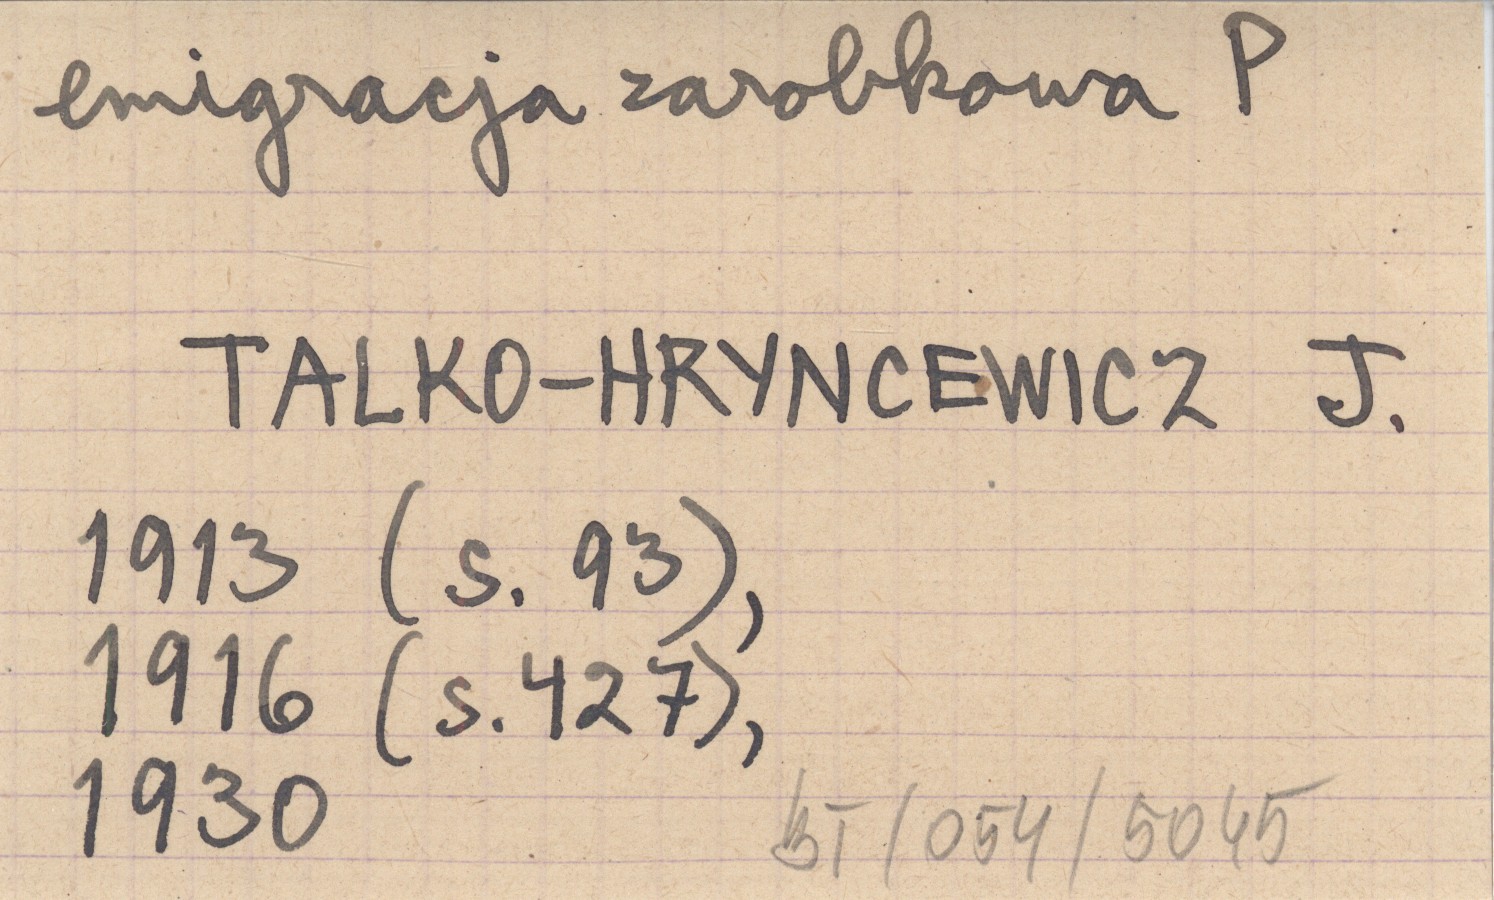 emigracja zarobkowa P
TALKO-HRYNCEWICZ J.
1913 (s. 93),
1916 (s. 427),
1930
BT/054/5045